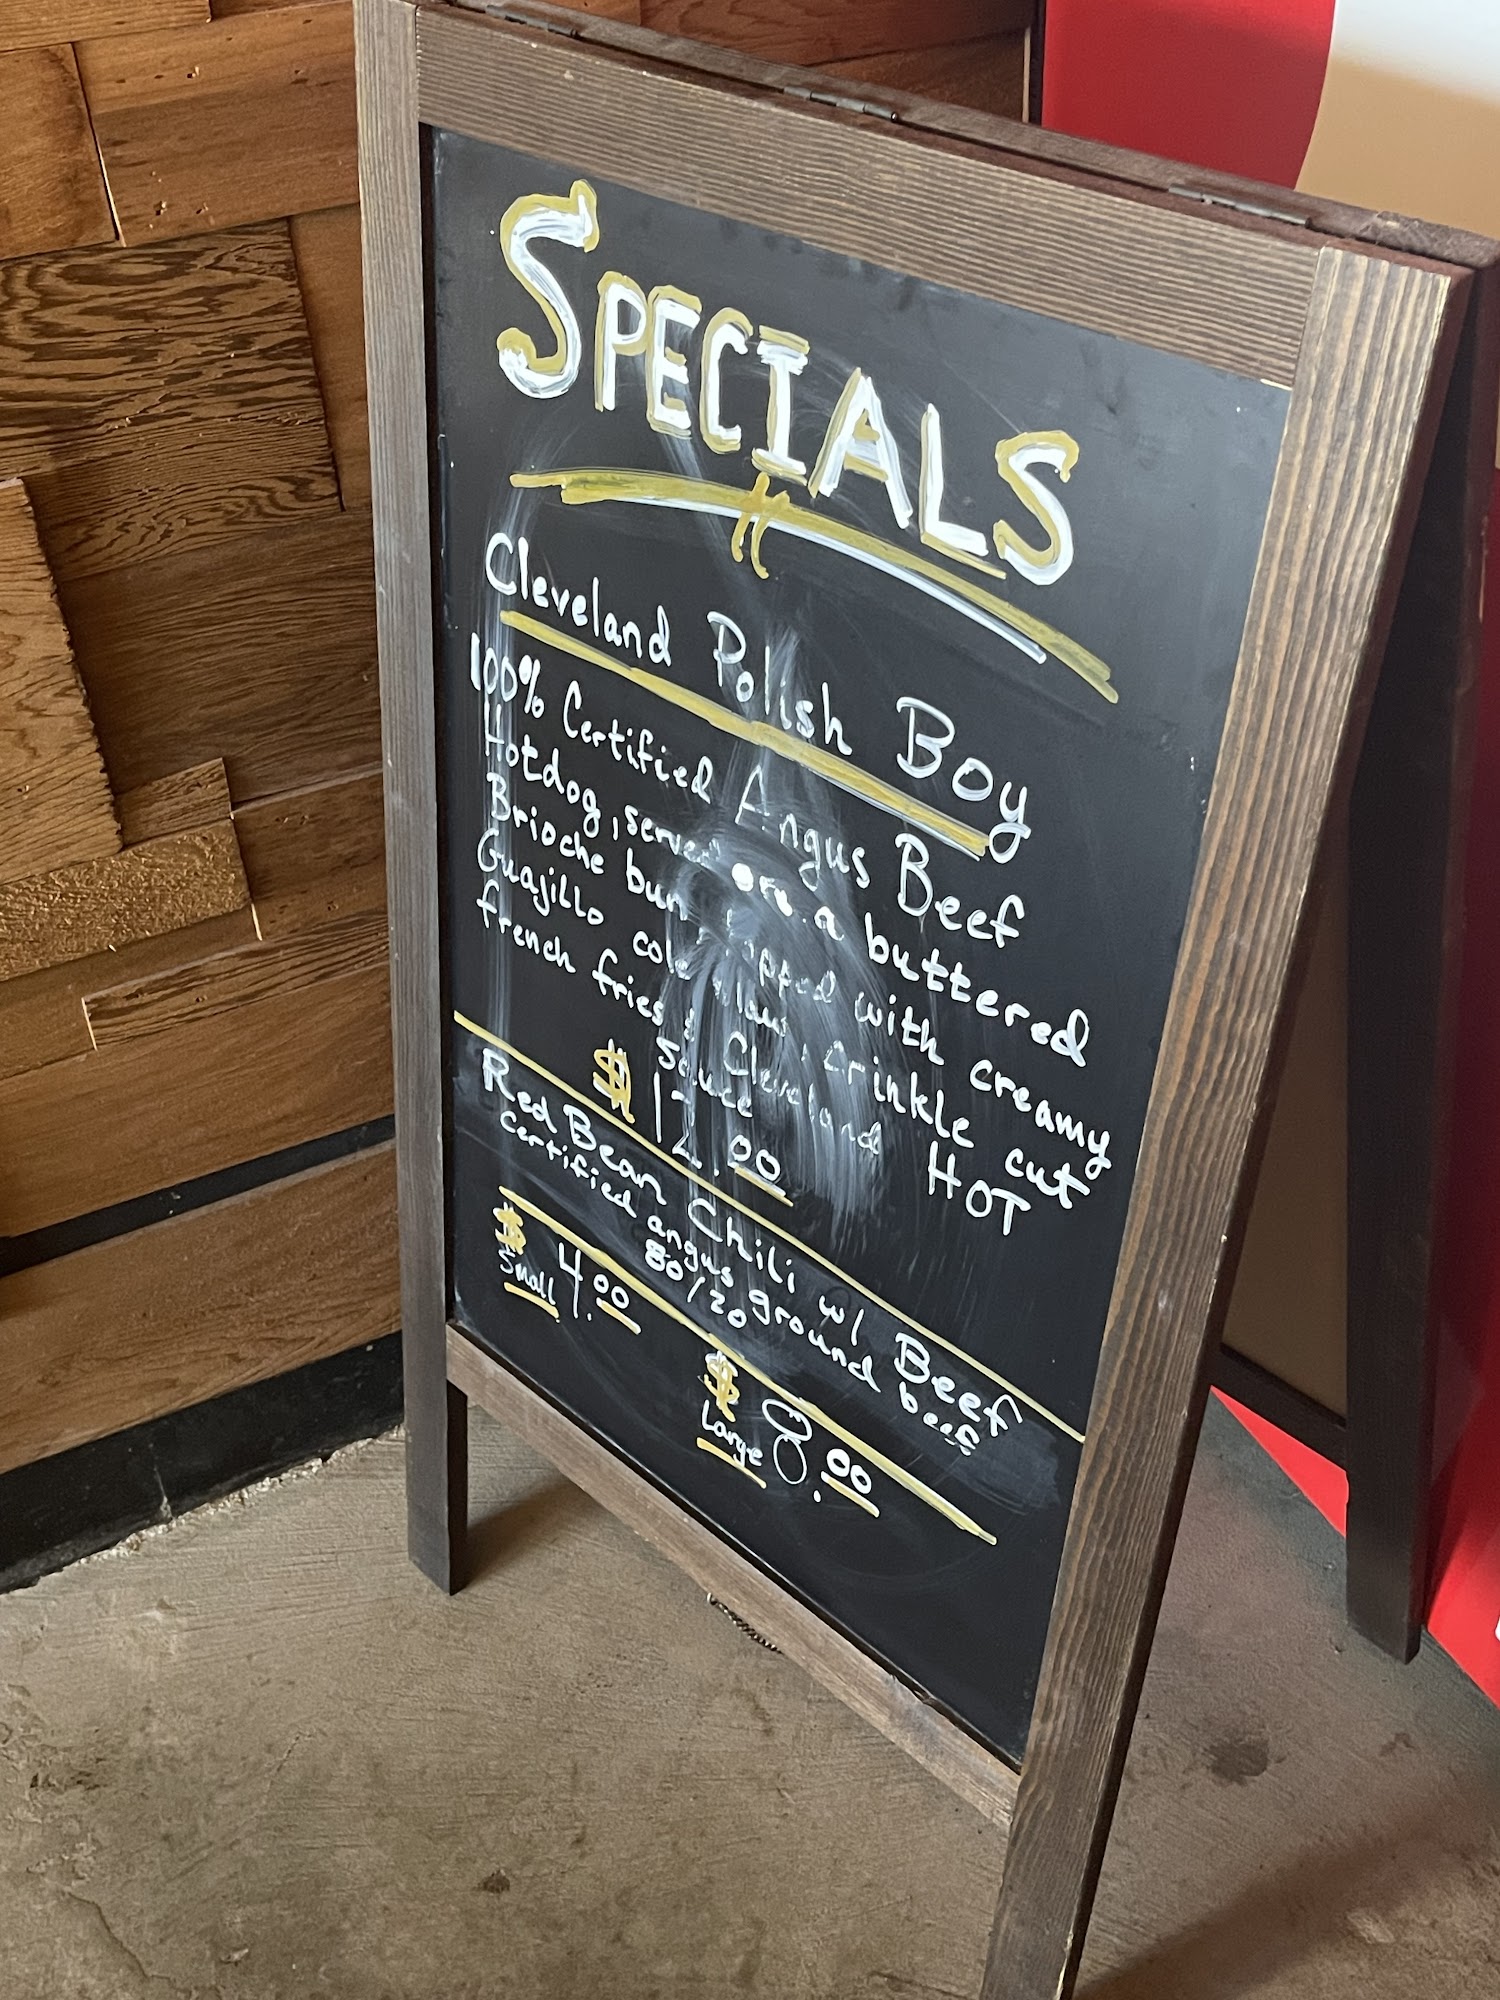 SPECIALS
Cleveland Polish Boy
100% Certified Angus Beef
Hotdog, served on a buttered
Brioche bun topped with creamy
Guajillo cole slaw, crinkle cut
french fries & Cleveland HOT
sauce
$12.00
Red Bean Chili w/ Beef
certified angus ground beef
80/20
$4.00
Small
$8.00
Large